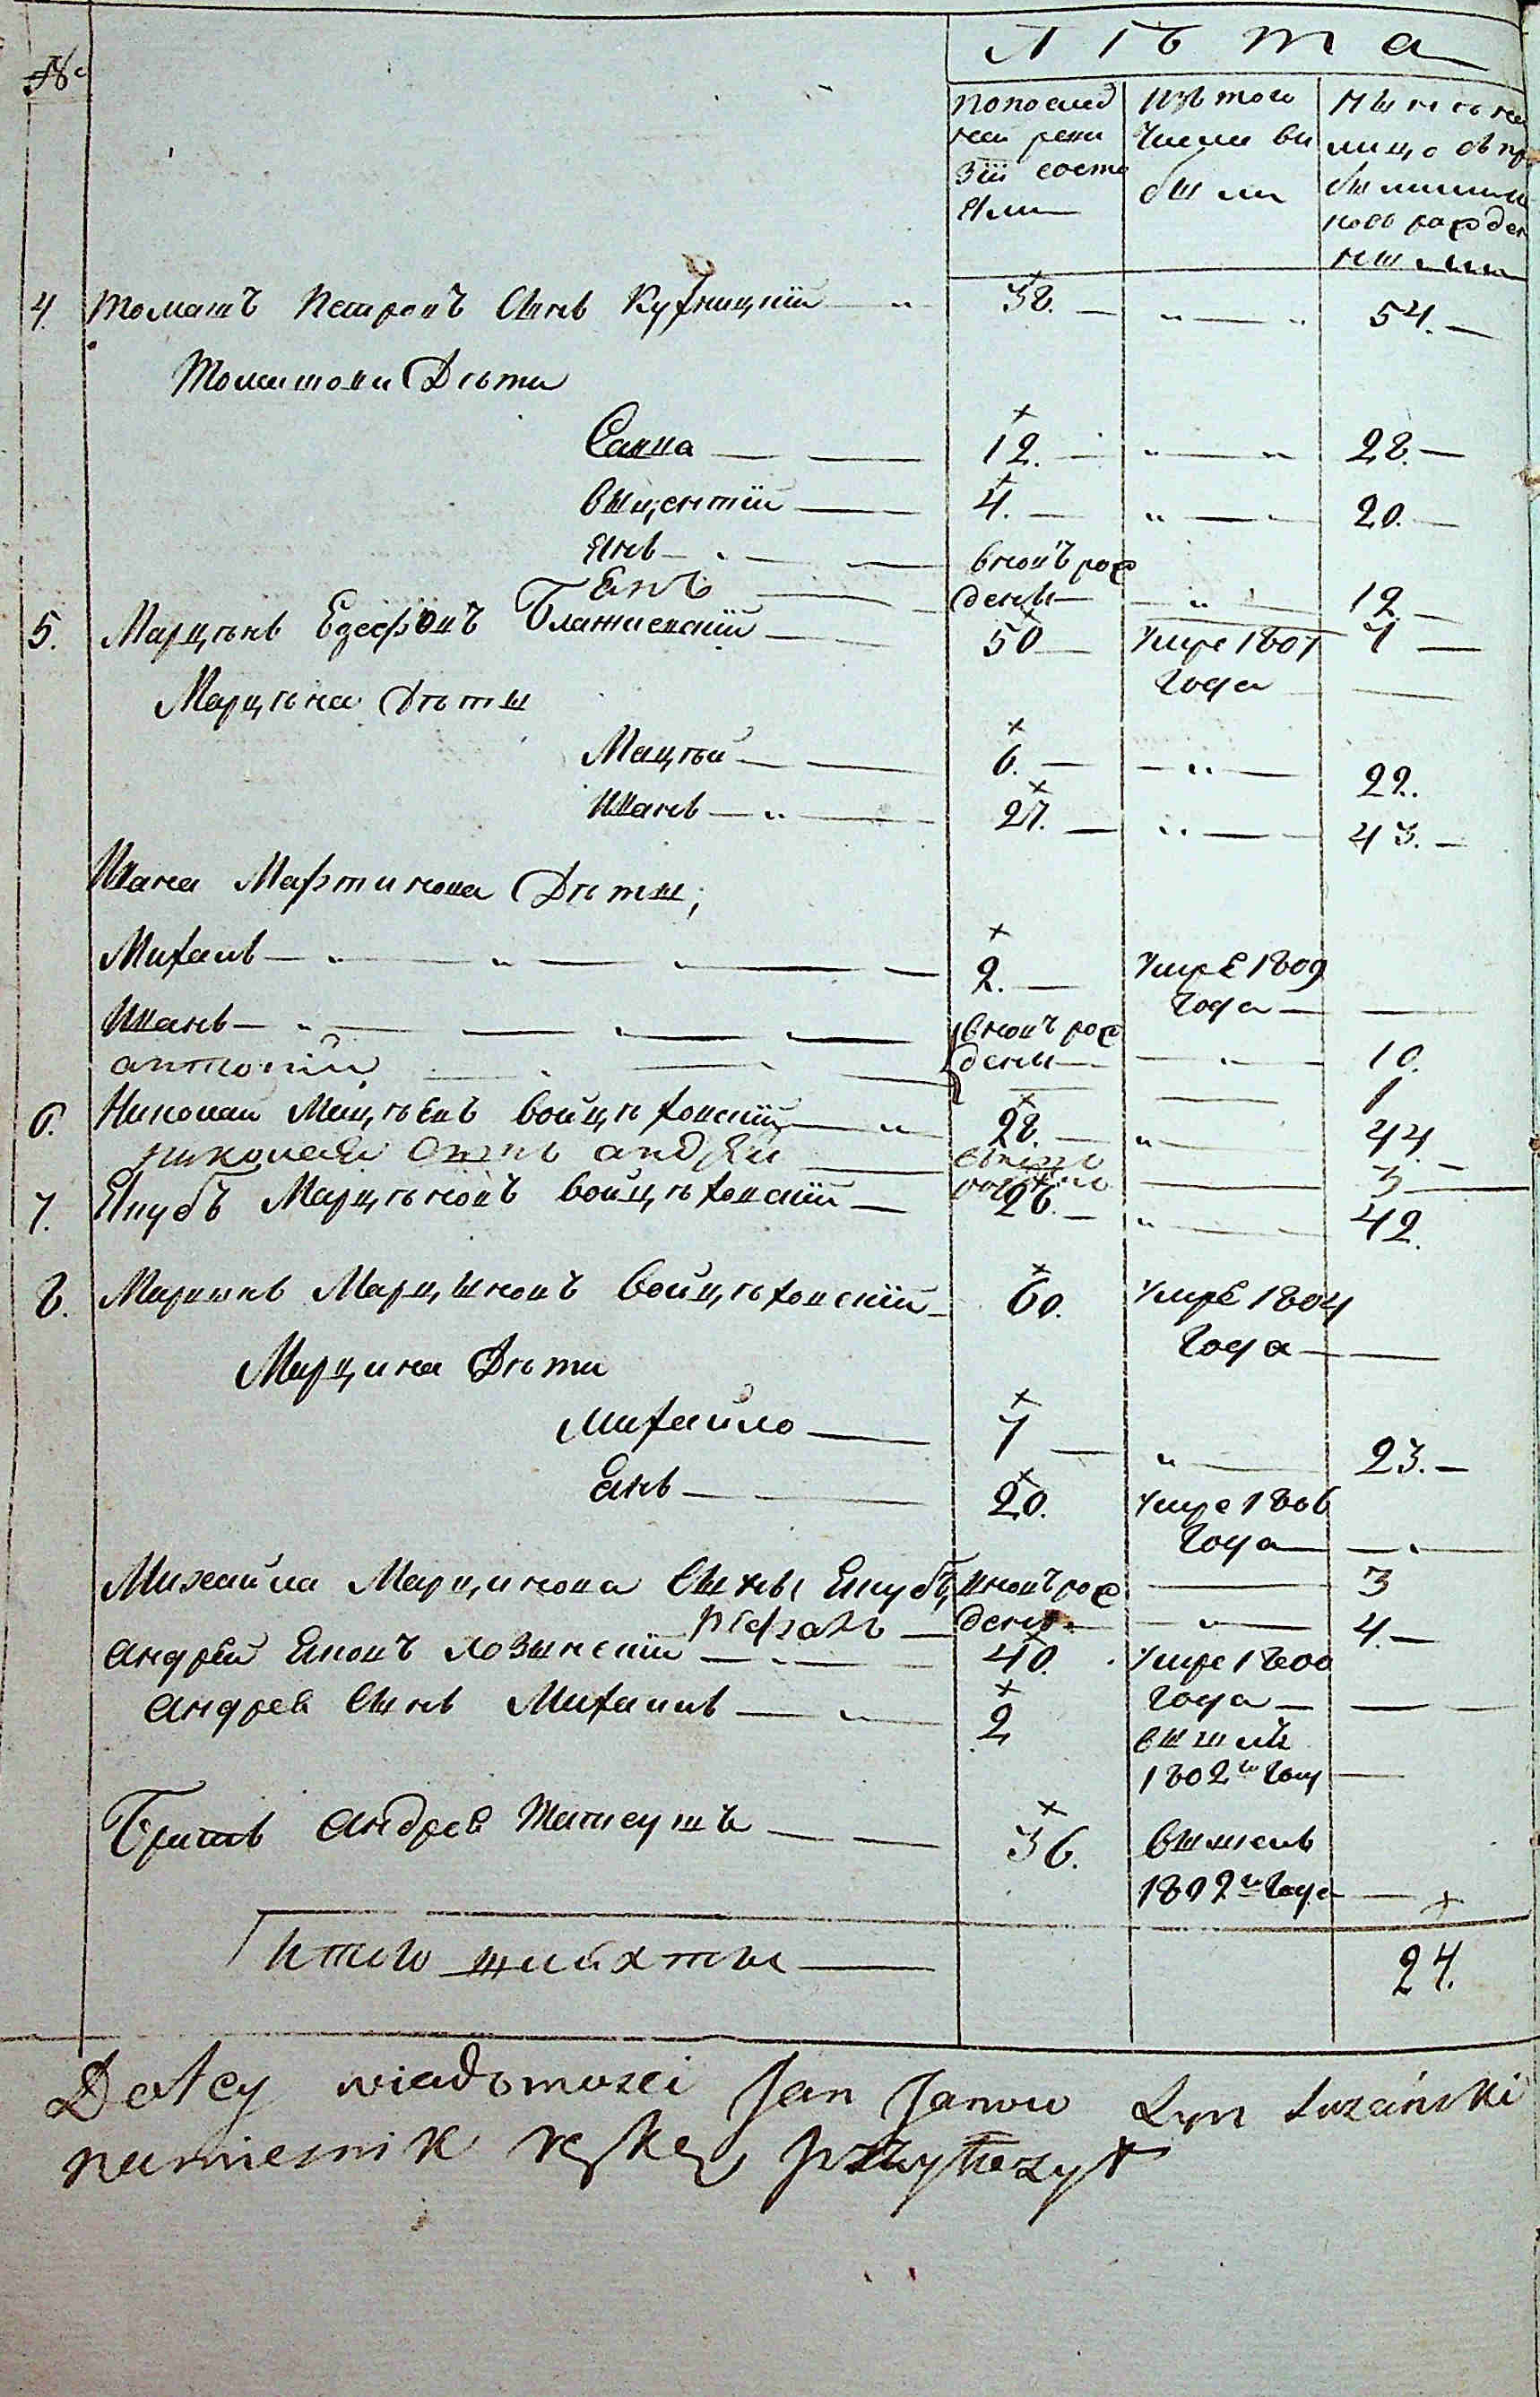 №
Лѣта
Попослѣд
ней реви
зіи состо
яли
Изъ того
числа вы
были
Нынѣ на
лицо съ пр
былыми и
новорожден
ными
4. Томашъ Петровъ Сынъ Кутницкій 38. 54.
Томашови Дѣти
Савва 12. 28.
Выцентій 4. 20.
Янъ вновъ рож
Янъ дены 12
5. Марцѣнъ Езефовъ Блажиевскій 50 умре 1807 7
Марцѣна Дѣты года
Мацѣй 6. 22.
Иванъ 27. 43.
Ивана Мартинова Дѣты;
Михаилъ 2. умре 1809
года
Иванъ вновъ рож
антоній дены 10.
1
6. Николай Мацѣевъ Войцѣховскій 28. 44.
николая сынъ андрей 3
7. Якубъ Марцѣновъ Войцѣховскій 26. 42.
8. Марцинъ Марцыновъ Войцѣховскій 60. умре 1804
года
Марцина Дѣти
Михайло 7 23.
Янъ 20. умре 1806
года
Михайла Марцинова Сыны Якубъ, вновъ рож 3
дены 4.
Андрей Яновъ Лозынскій 40. умре 1800
Андрея Сынъ Михаилъ 2 года
вышлъ
1802го году
Братъ Андрея Матеушъ 36. вышелъ
1802го года
Итого шляхты 24.
Datey wiadomosci Jan Janow Syn Łuzański
namiesnik rękę przyłożył